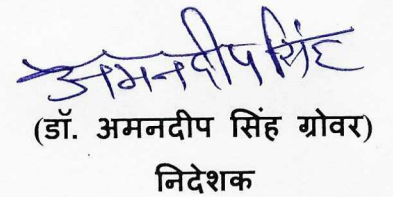 अमनदीप सिंह
(डॉ. अमनदीप सिंह ग्रोवर)
निदेशक